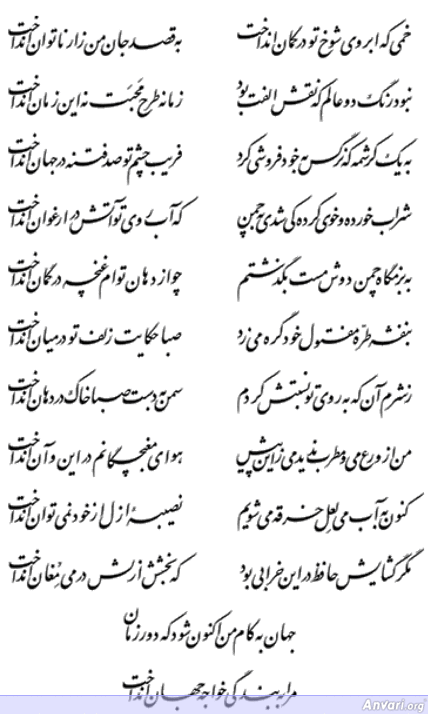 خمی که ابروی شوخ تو در کمان انداخت به قصد جان من زار ناتوان انداخت
نبود رنگ دو عالم که نقش الفت بود زمانه طرح محبت نه این زمان انداخت
به یک کرشمه که نرگس به خودفروشی کرد فریب چشم تو صد فتنه در جهان انداخت
شراب خورده و خوی کرده کی شدی به چمن که آب روی تو آتش در ارغوان انداخت
به بزمگاه چمن دوش مست بگذشتم چو از دهان توام غنچه در گمان انداخت
بنفشه طرّه مفتول خود گره می‌زد صبا حکایت زلف تو در میان انداخت
ز شرم آن که به روی تو نسبتش کردم سمن به دست صبا خاک در دهان انداخت
من از ورع می و مطرب ندیدمی زین پیش هوای مغبچگانم در این و آن انداخت
کنون به آب می لعل خرقه می‌شویم نصیبهٔ ازل از خود نمی‌توان انداخت
مگر گشایش حافظ در این خرابی بود که بخشش ازلش در می مغان انداخت
جهان به کام من اکنون شود که دور زمان
مرا به بندگی خواجه جهان انداخت
Anvari.org